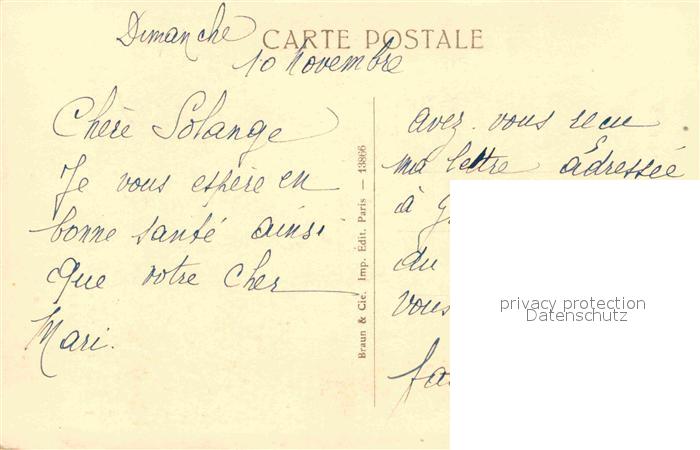 Dimanche
CARTE POSTALE
10 Novembre
Chère Solange
Je vous espère en
bonne santé ainsi
que votre cher
Mari.
Braun & Cie. Imp. Edit. Paris — 13866
avez. vous reçu
ma lettre adressée
à
du
vous
privacy protection
Datenschutz